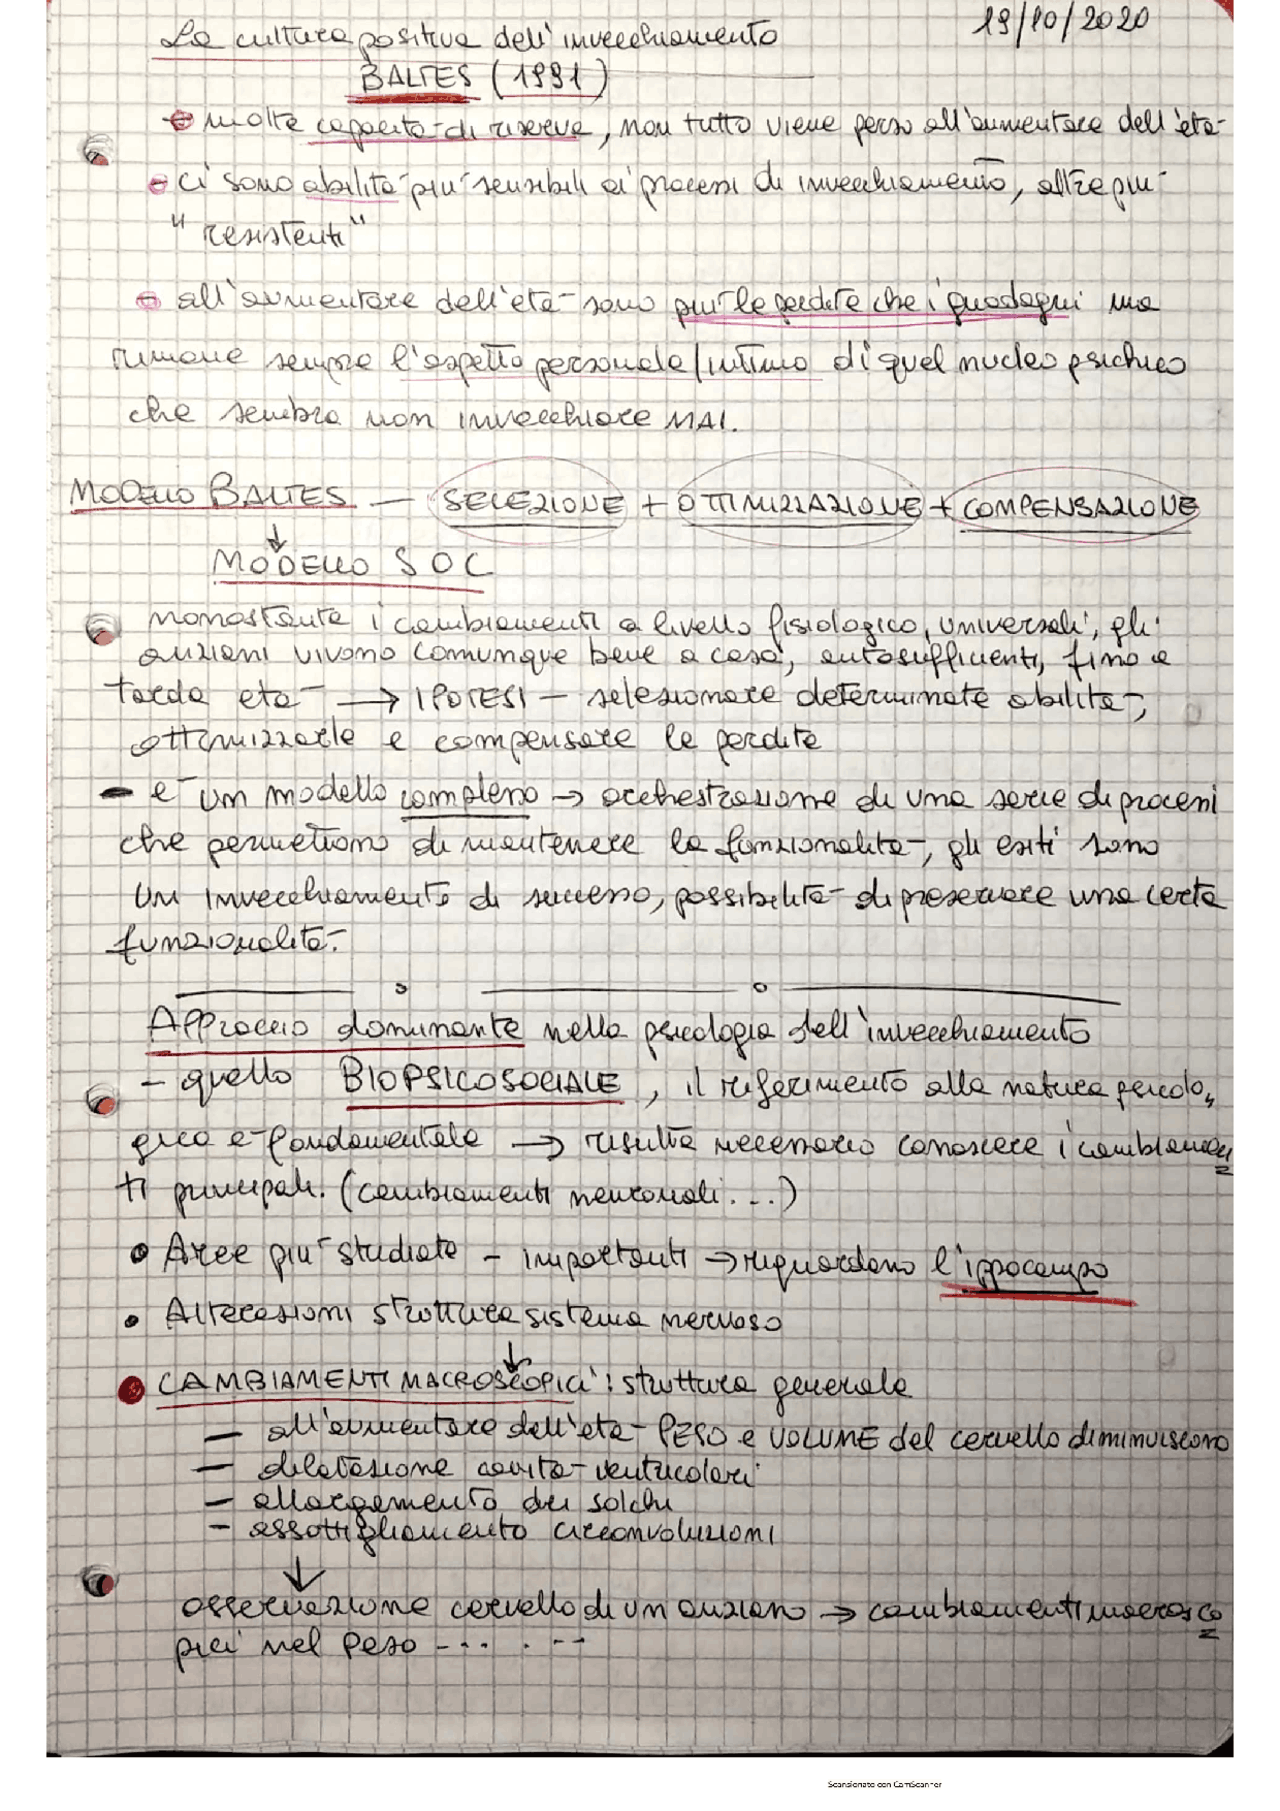 19/10/2020
La cultura positiva dell'invecchiamento
BALTES (1991)
molte capacità di riserva, non tutto viene perso all'aumentare dell'età
ci sono abilità più sensibili ai processi di invecchiamento, altre più
"resistenti"
all'aumentare dell'età sono più le perdite che i guadagni ma
rimane sempre l'aspetto personale/intimo di quel nucleo psichico
che sembra non invecchiare MAI.
MODELLO BALTES — SELEZIONE + OTTIMIZZAZIONE + COMPENSAZIONE
↓
MODELLO SOC
nonostante i cambiamenti a livello fisiologico, universali, gli
anziani vivono comunque bene a casa, autosufficienti, fino a
tarda età → IPOTESI — selezionare determinate abilità,
ottimizzarle e compensare le perdite
- è un modello complesso → orchestrazione di una serie di processi
che permettono di mantenere la funzionalità, gli esiti sono
un invecchiamento di successo, possibilità di preservare una certa
funzionalità.
Approccio dominante nella psicologia dell'invecchiamento
- quello BIOPSICOSOCIALE, il riferimento alla natura psicolo„
gica è fondamentale → risulta necessario conoscere i cambiamen
ti principali. (cambiamenti neuronali...)
• Aree più studiate - importanti → riguardano l'ippocampo
• Alterazioni struttura sistema nervoso
↓
• CAMBIAMENTI MACROSCOPICI: struttura generale
— all'aumentare dell'età PESO e VOLUME del cervello diminuiscono
— dilatazione cavità ventricolari
— allargamento dei solchi
- assottigliamento circonvoluzioni
↓
osservazione cervello di un anziano → cambiamenti macrosco
pici nel peso -... . --
Scansionato con CamScanner